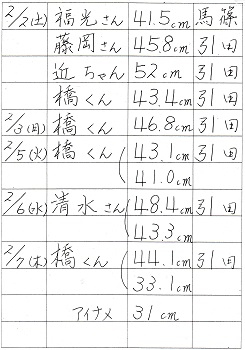 2/2(土) 福光さん 41.5cm 馬篠
藤岡さん 45.8cm 引田
近ちゃん 52cm 引田
橋くん 43.4cm 引田
2/3(日) 橋くん 46.8cm 引田
2/5(火) 橋くん 43.1cm 引田
41.0cm
2/6(水) 清水さん 48.4cm 引田
43.3cm
2/7(木) 橋くん 44.1cm 引田
33.1cm
アイナメ 31cm